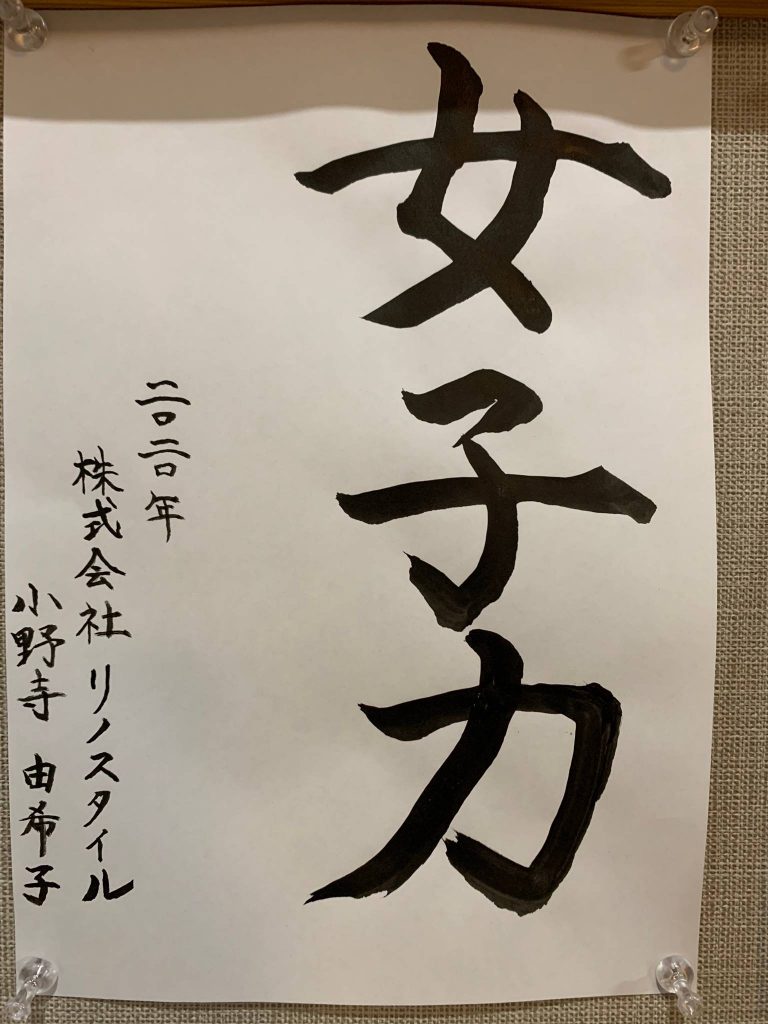 女子力
二〇二〇年
株式会社リノスタイル
小野寺 由希子